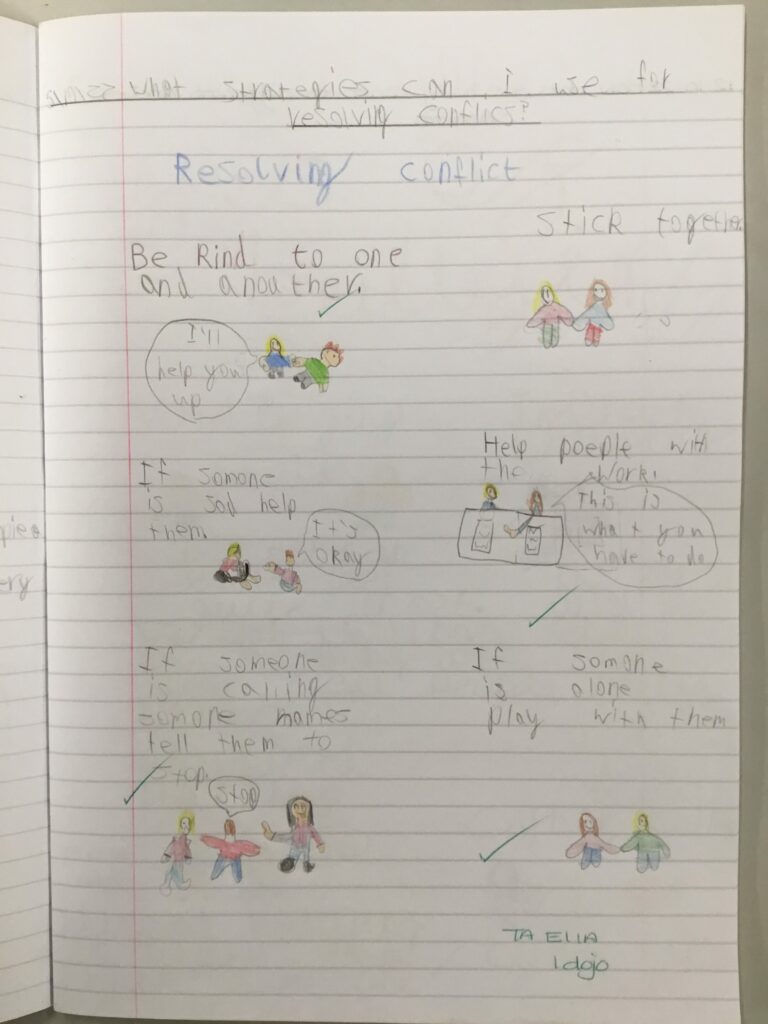 What strategies can I use for
resolving conflics?
Resolving conflict
Stick together
Be kind to one
and anouther.
I'll
help you
up
Help poeple with
the work.
This is
what you
have to do
If somone
is sad help
them.
It's
okay
If someone
is calling
somone names
tell them to
stop.
stop
If somone
is alone
play with them
TA Ella
1 dojo